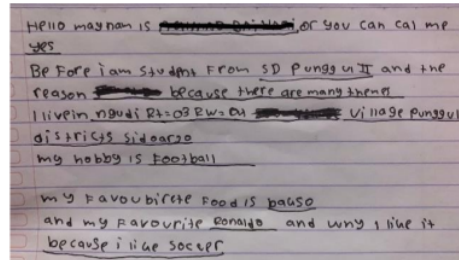 Hello may nam is or you can cal me
yes
Be Fore i am Student From SD Punggul II and the
reason because there are many themes
I live in ngudi Rt=03 RW=01 Village Punggul
districts Sidoarjo
my hobby is Football
my Favoubirete Food is bauso
and my Favourite Ronaldo and why i like it
because i like soccer